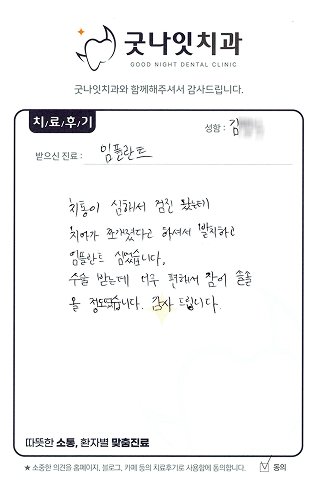 굿나잇치과
GOOD NIGHT DENTAL CLINIC
굿나잇치과와 함께해주셔서 감사드립니다.
치/료/후/기
성함 : 김
받으신 진료 : 임플란트
치통이 심해서 검진 왔는데
치아가 쪼개졌다고 하셔서 발치하고
임플란트 심었습니다.
수술 받는데 너무 편해서 잠이 솔솔
올 정도였습니다. 감사 드립니다.
따뜻한 소통, 환자별 맞춤진료
★ 소중한 의견을 홈페이지, 블로그, 카페 등의 치료후기로 사용함에 동의합니다. ☑ 동의